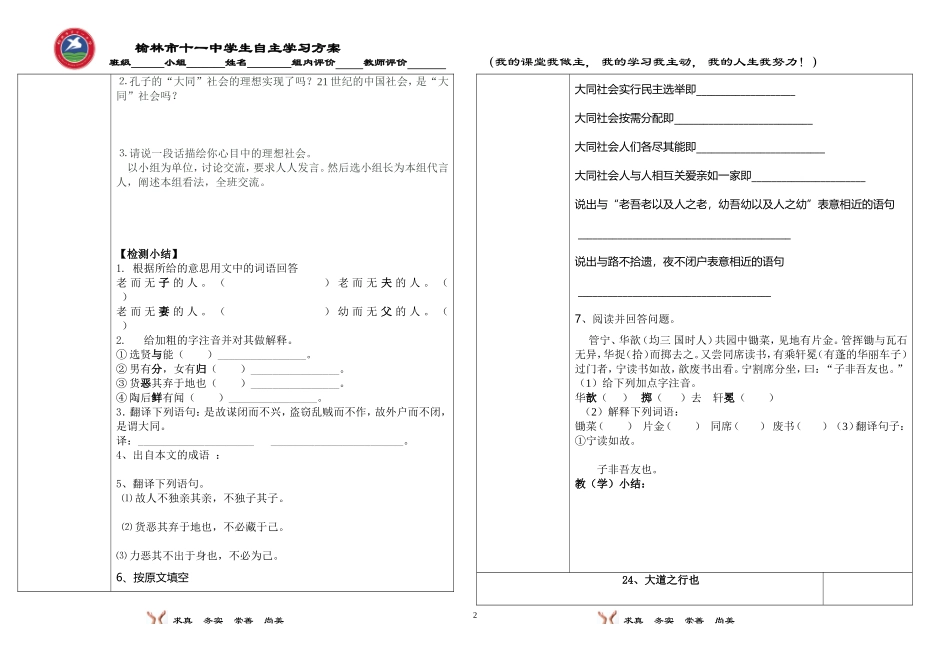 榆林市十一中学生自主学习方案
班级______小组_______姓名________组内评价_____教师评价_______
2.孔子的“大同”社会的理想实现了吗？21世纪的中国社会，是“大
同”社会吗？
3.请说一段话描绘你心目中的理想社会。
以小组为单位，讨论交流，要求人人发言。然后选小组长为本组代言
人，阐述本组看法，全班交流。
【检测小结】
1. 根据所给的意思用文中的词语回答
老而无子的人。（ ）老而无夫的人。（
）
老而无妻的人。（ ）幼而无父的人。（
）
2. 给加粗的字注音并对其做解释。
①选贤与能（ ）________________。
②男有分，女有归（ ）________________。
③货恶其弃于地也（ ）________________。
④陶后鲜有闻（ ）________________。
3．翻译下列语句：是故谋闭而不兴，盗窃乱贼而不作，故外户而不闭，
是谓大同。
译：_____________________ ________________________。
4、出自本文的成语 ：
5、翻译下列语句。
⑴ 故人不独亲其亲，不独子其子。
⑵ 货恶其弃于地也，不必藏于己。
⑶ 力恶其不出于身也，不必为己。
6、按原文填空
求真 务实 常善 尚美
2
（我的课堂我做主， 我的学习我主动， 我的人生我努力！）
大同社会实行民主选举即____________________
大同社会按需分配即____________________________
大同社会人们各尽其能即__________________________
大同社会人与人相互关爱亲如一家即_______________________
说出与“老吾老以及人之老，幼吾幼以及人之幼”表意相近的语句
___________________________________________
说出与路不拾遗，夜不闭户表意相近的语句
_______________________________________
7、阅读并回答问题。
管宁、华歆（均三国时人）共园中锄菜，见地有片金。管挥锄与瓦石
无异，华捉（拾）而掷去之。又尝同席读书，有乘轩冕（有蓬的华丽车子）
过门者，宁读书如故，歆废书出看。宁割席分坐，曰：“子非吾友也。”
（1）给下列加点字注音。
华歆（ ） 掷（ ）去 轩冕（ ）
（2）解释下列词语：
锄菜（ ） 片金（ ） 同席（ ） 废书（ ）（3）翻译句子：
①宁读如故。
子非吾友也。
教（学）小结：
24、大道之行也
求真 务实 常善 尚美